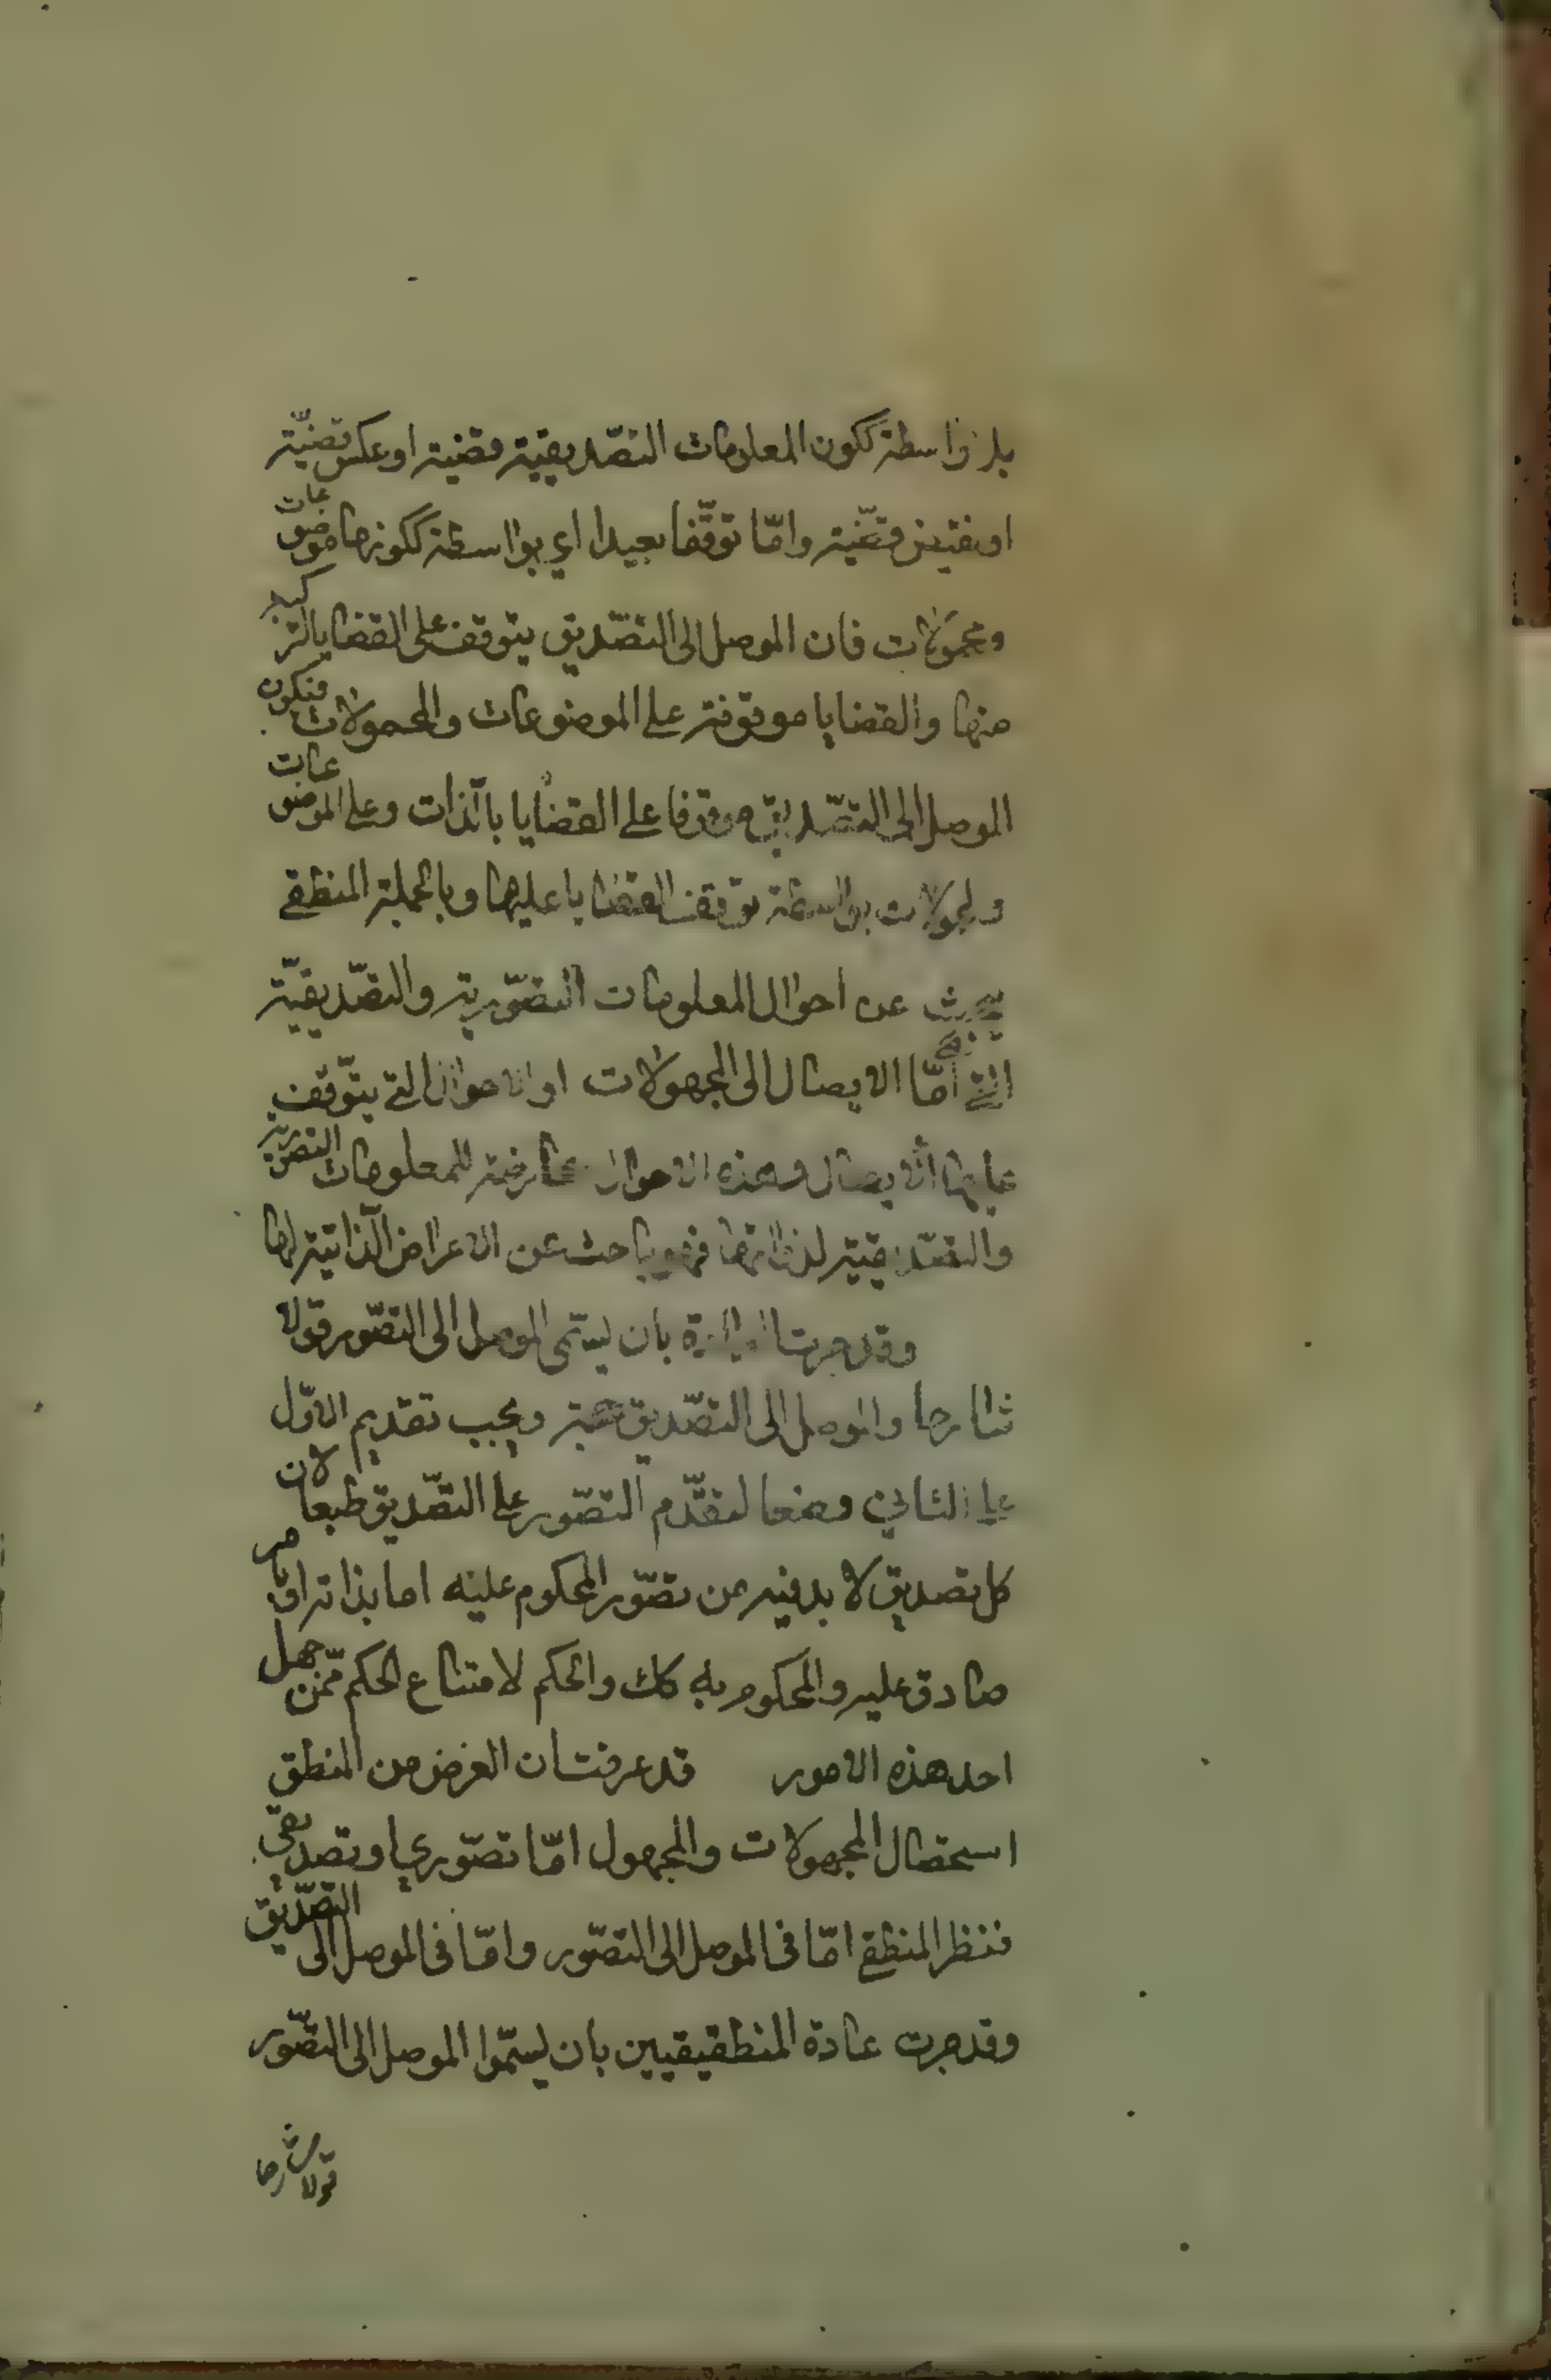 بلا واسطة ككون المعلومات التصديقية قضية او عكس قضيّة
او نقيض قضيّة وامّا توقّفا بعيدا اي بوااسطة ككونها موضوعات
ومحمولات فان الموصل الى التصّديق يتوقف على القضايا التركيب
منها والقضايا موقوفة على الموضوعات والمحمولات فيكون
الموصل الى التصّديق موقوفا على القضايا بالذات وعلى الموضوعات
والمحمولات بواسطة توقف القضايا عليها وبالجملة المنطقي
يبحث عن احوال المعلومات التصّورية والتصّديقيّة
التي امّا الايصال الى المجهولات او الاحوال التي يتوّقف
عليها الايصال وهذه الاحوال عارضة للمعلومات التصورية
والتصّديقية لذواتها فهو باحث عن الاعراض الذاتية لها
وقد جرت العادة بان يسمّى الموصل الى التصّور قولا
شارحا والموصل الى التصّديق حجة ويجب تقديم الاوّل
على الثاني وضعا لتقدّم التصّور على التصّديق طبعا لان
كل تصديق لا بد فيه من تصّور المحكوم عليه اما بذاته او بامر
صادق عليه والمحكوم به كك والحكم لامتناع الحكم ممّن جهل
احد هذه الامور قد عرفت ان الغرض من المنطق
استحصال المجهولات والمجهول امّا تصّوري او تصديقي
فنظر المنطقي امّا في الموصل الى التصّور وامّا في الموصل الى التصّديق
وقد جرت عادة المنطقيقيين بان يسمّوا الموصل الى التصّور
قولا شارحا